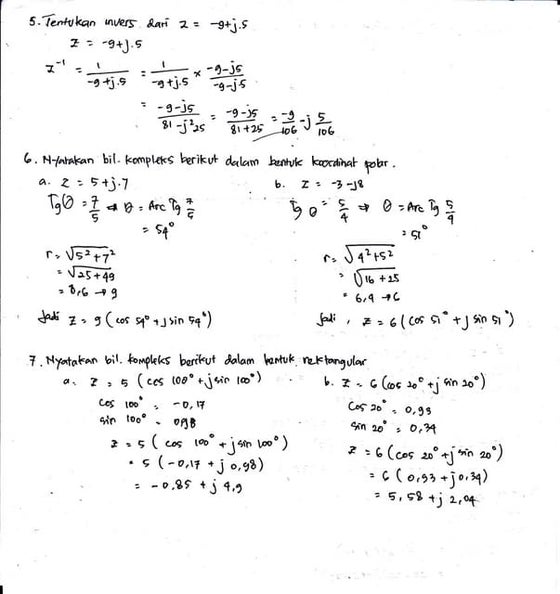 5. Tentukan invers dari z = -9+j.5
z = -9+j.5
z⁻¹ = 1/(-9+j.5) = 1/(-9+j.5) × (-9-j5)/(-9-j5)
= (-9-j5)/(81-j²25) = (-9-j5)/(81+25) = -9/106 -j 5/106
6. Nyatakan bil. kompleks berikut dalam bentuk koordinat polar.
a. z = 5+j.7
Tg θ = 7/5 ⇒ θ = Arc Tg 7/5
= 54°
r = √5²+7²
= √25+49
= 8,6 → 9
Jadi z = 9 (cos 54° + j sin 54°)
b. z = -3-j8
Tg θ = 5/4 ⇒ θ = Arc Tg 5/4
= 51°
r = √4²+5²
= √16+25
= 6,4 → 6
Jadi, z = 6 (cos 51° + j sin 51°)
7. Nyatakan bil. kompleks berikut dalam bentuk rektangular
a. z = 5 (cos 100° + j sin 100°)
cos 100° = -0,17
sin 100° = 0,98
z = 5 ( cos 100° + j sin 100°)
= 5 (-0,17 + j 0,98)
= -0,85 + j 4,9
b. z = 6 (cos 20° + j sin 20°)
cos 20° = 0,93
sin 20° = 0,34
z = 6 (cos 20° + j sin 20°)
= 6 ( 0,93 + j 0,34)
= 5,58 + j 2,04